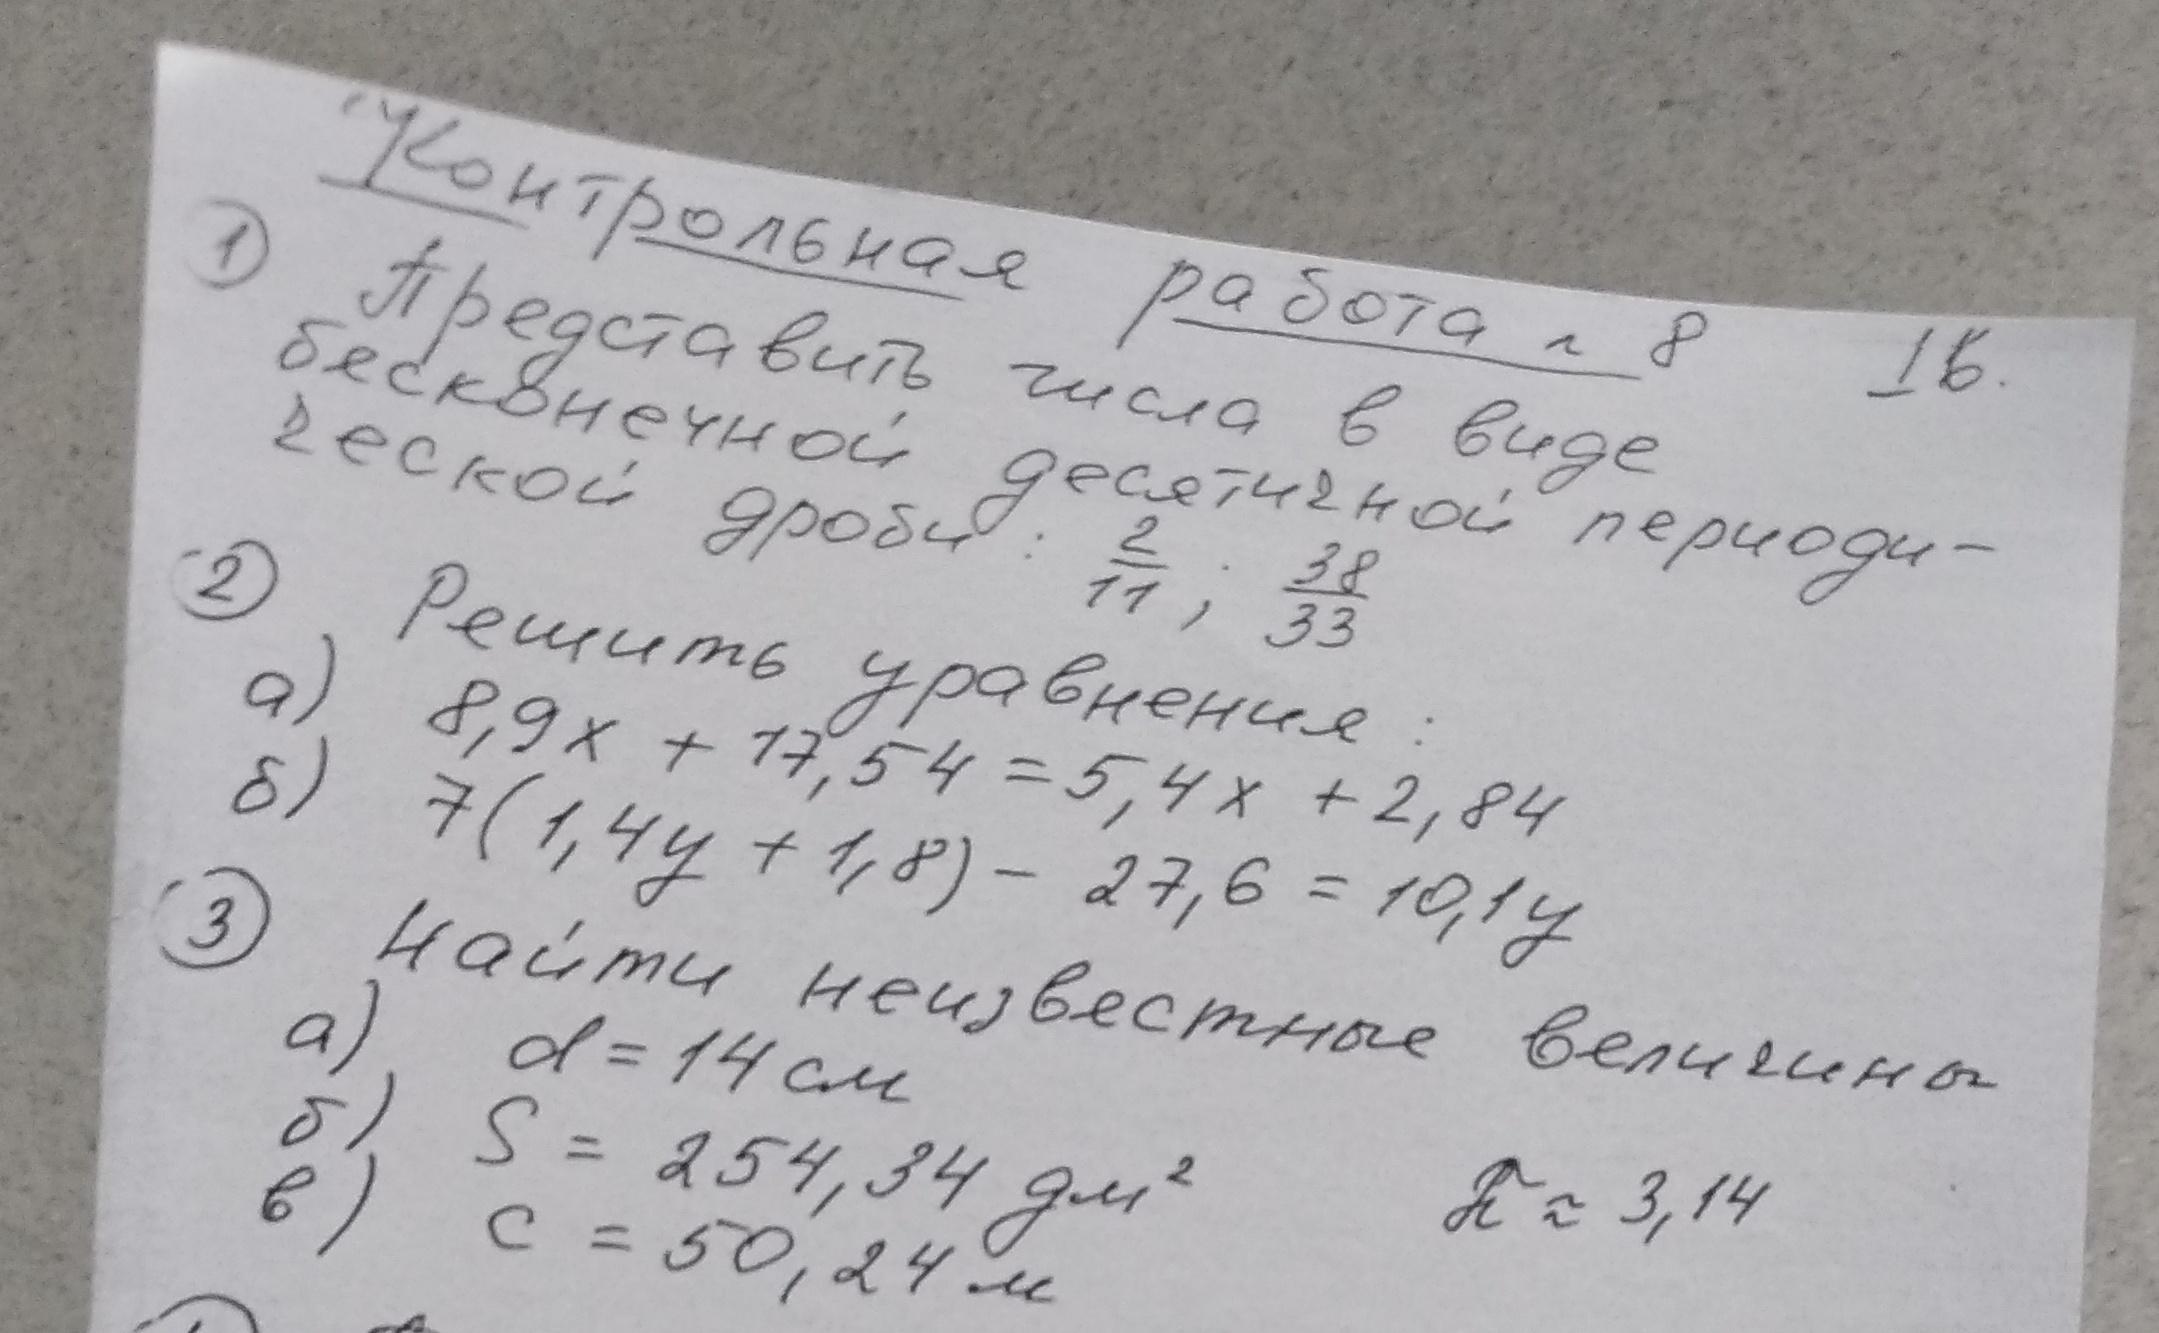 Контрольная работа № 8 I в.
① Представить числа в виде
бесконечной десятичной периоди-
ческой дроби: 2/11; 38/33
② Решить уравнения:
а) 8,9x + 17,54 = 5,4x + 2,84
б) 7(1,4y + 1,8) - 27,6 = 10,1y
③ Найти неизвестные величины
а) d = 14 см
б) S = 254,34 дм² π ≈ 3,14
в) c = 50,24 м